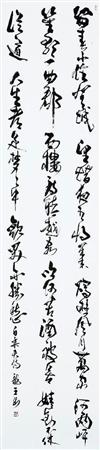 留春不住登城望惜夜相將秉燭遊風月萬家河兩岸
笙歌一曲郡西樓詩聽越客吟何苦酒被吳娃勸不休
從道人生都是夢夢中歡笑亦勝愁白居易詩